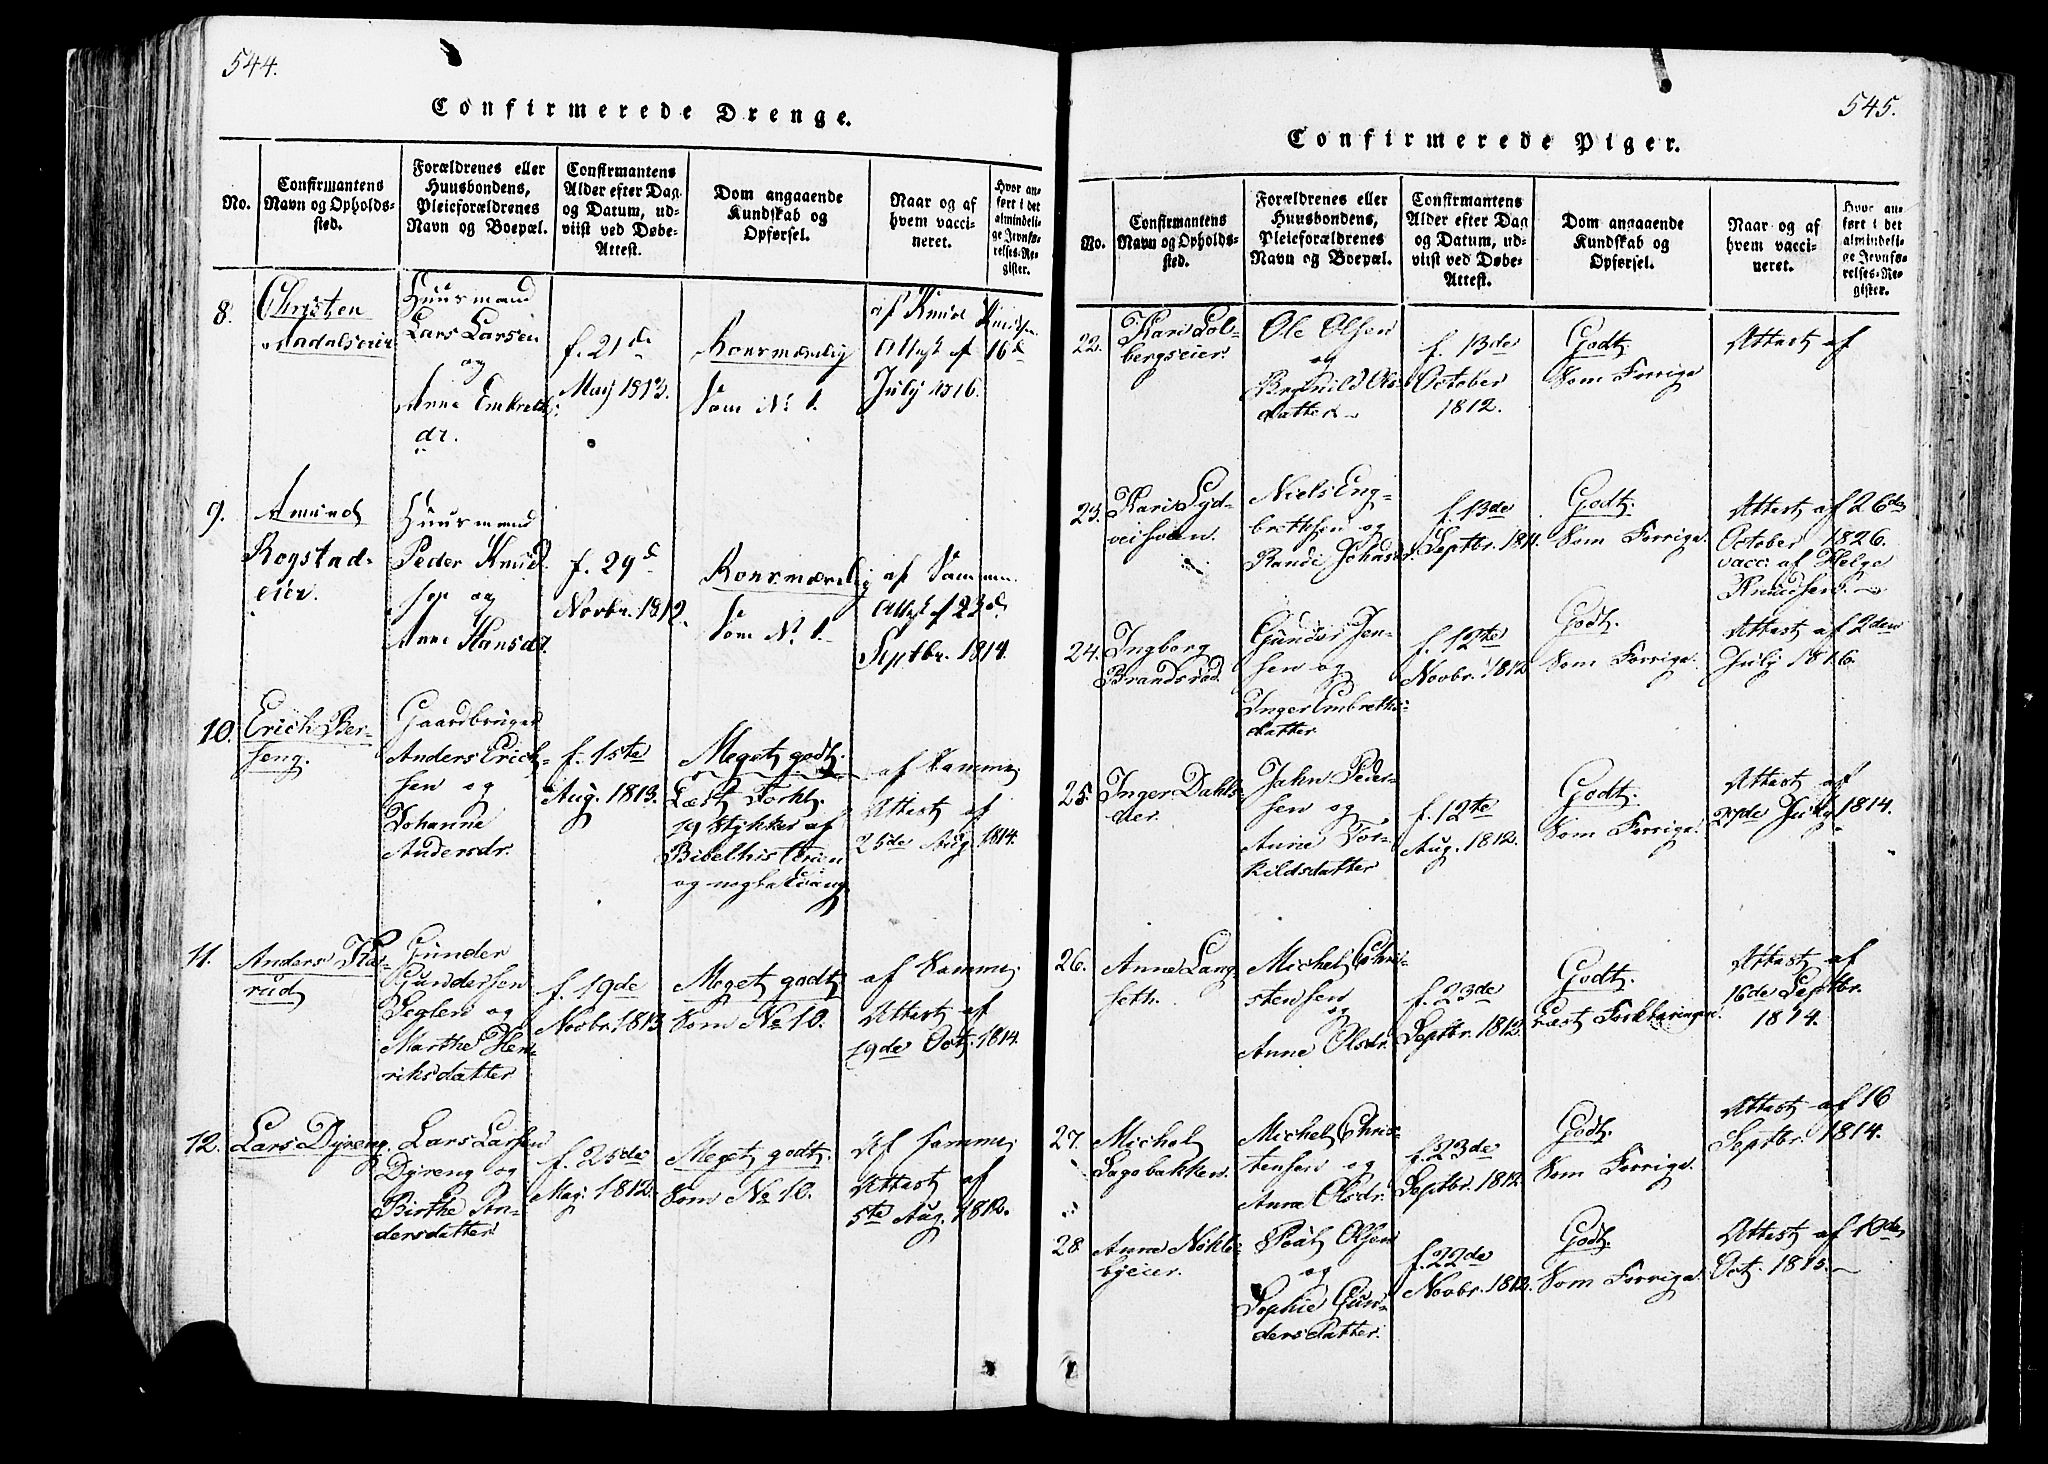 544.
Confirmerede Drenge.
No.
Confirmantens
Navn og Opholds-
sted.
Forældrenes eller
Huusbondens,
Pleieforældrenes
Navn og Boepæl.
Confirmantens
Alder efter Dag
og Datum, ud-
viist ved Døbe-
Attest.
Dom angaaende
Kundskab og
Opførsel.
Naar og af
hvem vacci-
neret.
Hvor an-
ført i det
almindeli-
ge Jevnfø-
relses-Re-
gister.
8.
Christen
Huusmand
Lars Larsen
og
Anne Embrets
dr.
f. 21de
May 1813.
Som No 1.
af Knud Knudsen
Attest af 16de
July 1816.
9.
Amund
Rogstad-
eier.
Huusmand
Peder Knud
sen og
Anne Hansdr.
f. 29de
Novbr. 1812.
Som No 1.
af Samme
Attest af 23de
Septbr. 1814.
10.
Erich Ber-
seng.
Gaardbruger
Anders Erich-
sen og
Johanne
Andersdr.
f. 1ste
Aug. 1813.
Meget godt.
Læst Forkl.
19 stykker af
Bibelhistorien
og nogle Evang.
af Samme
Attest af
25de Aug. 1814.
11.
Anders Ka-
rud
Gunder
Gundersen
Seglen og
Marthe Hen-
riksdatter
f. 19de
Novbr. 1813
Meget godt
Som No 10.
af Samme
Attest af
19de Oct. 1814.
12.
Lars Dyreng.
Lars Larsen
Dyreng og
Birthe An-
dersdatter
f. 25de
May 1812.
Meget godt.
Som No 10.
Af samme
Attest af
5te Aug. 1812.
545.
Confirmerede Piger.
No.
Confirmantens
Navn og Opholds-
sted.
Forældrenes eller
Huusbondens,
Pleieforældrenes
Navn og Boepæl.
Confirmantens
Alder efter Dag
og Datum, ud-
viist ved Døbe-
Attest.
Dom angaaende
Kundskab og
Opførsel.
Naar og af
hvem vacci-
neret.
Hvor an-
ført i det
almindeli-
ge Jevnfø-
relses-Re-
gister.
22.
Kari Sol-
bergseier.
Ole Olsen
og
Brynild Ols-
datter
f. 13de
October
1812.
Godt.
Som Forrige
Attest af
23.
Kari
Niels Eng-
brettsen og
Randi Johnsdr.
f. 13de
Septbr. 1811.
Godt.
Som Forrige.
Attest af 26de
October 1826.
vacc: af Helge
Knudsen.
24.
Ingborg
Brandsrud.
Gunder Jen-
sen og
Inger Embreths-
datter
f. 12te
Novbr. 1812
Godt.
Som Forrige.
Attest af 2den
July 1816.
25.
Inger Dahls-
eier.
Jahn Peder-
sen og
Anne Tor-
kildsdatter
f. 12te
Aug. 1812.
Godt.
Som Forrige.
Attest af
27de July 1814.
26.
Anne Lang
seth.
Michel Chri-
stensen
og
Anne Olsdr.
f. 23de
Septbr. 1812.
Godt.
Læst Forklaringen.
Attest af
16de Septbr.
1814.
27.
Michol
Sagebakken.
Michel Chris-
tensen og
Anne Olsdr.
f. 23de
Septbr. 1812.
Godt.
Som Forrige.
Attest af 16
Septbr. 1814.
28.
Anne Nökle-
byeier.
Poul Olsen
og
Sophie Gun-
dersdatter.
f. 22de
Novbr. 1812.
Godt.
Som Forrige.
Attest af 10de
Oct. 1815.